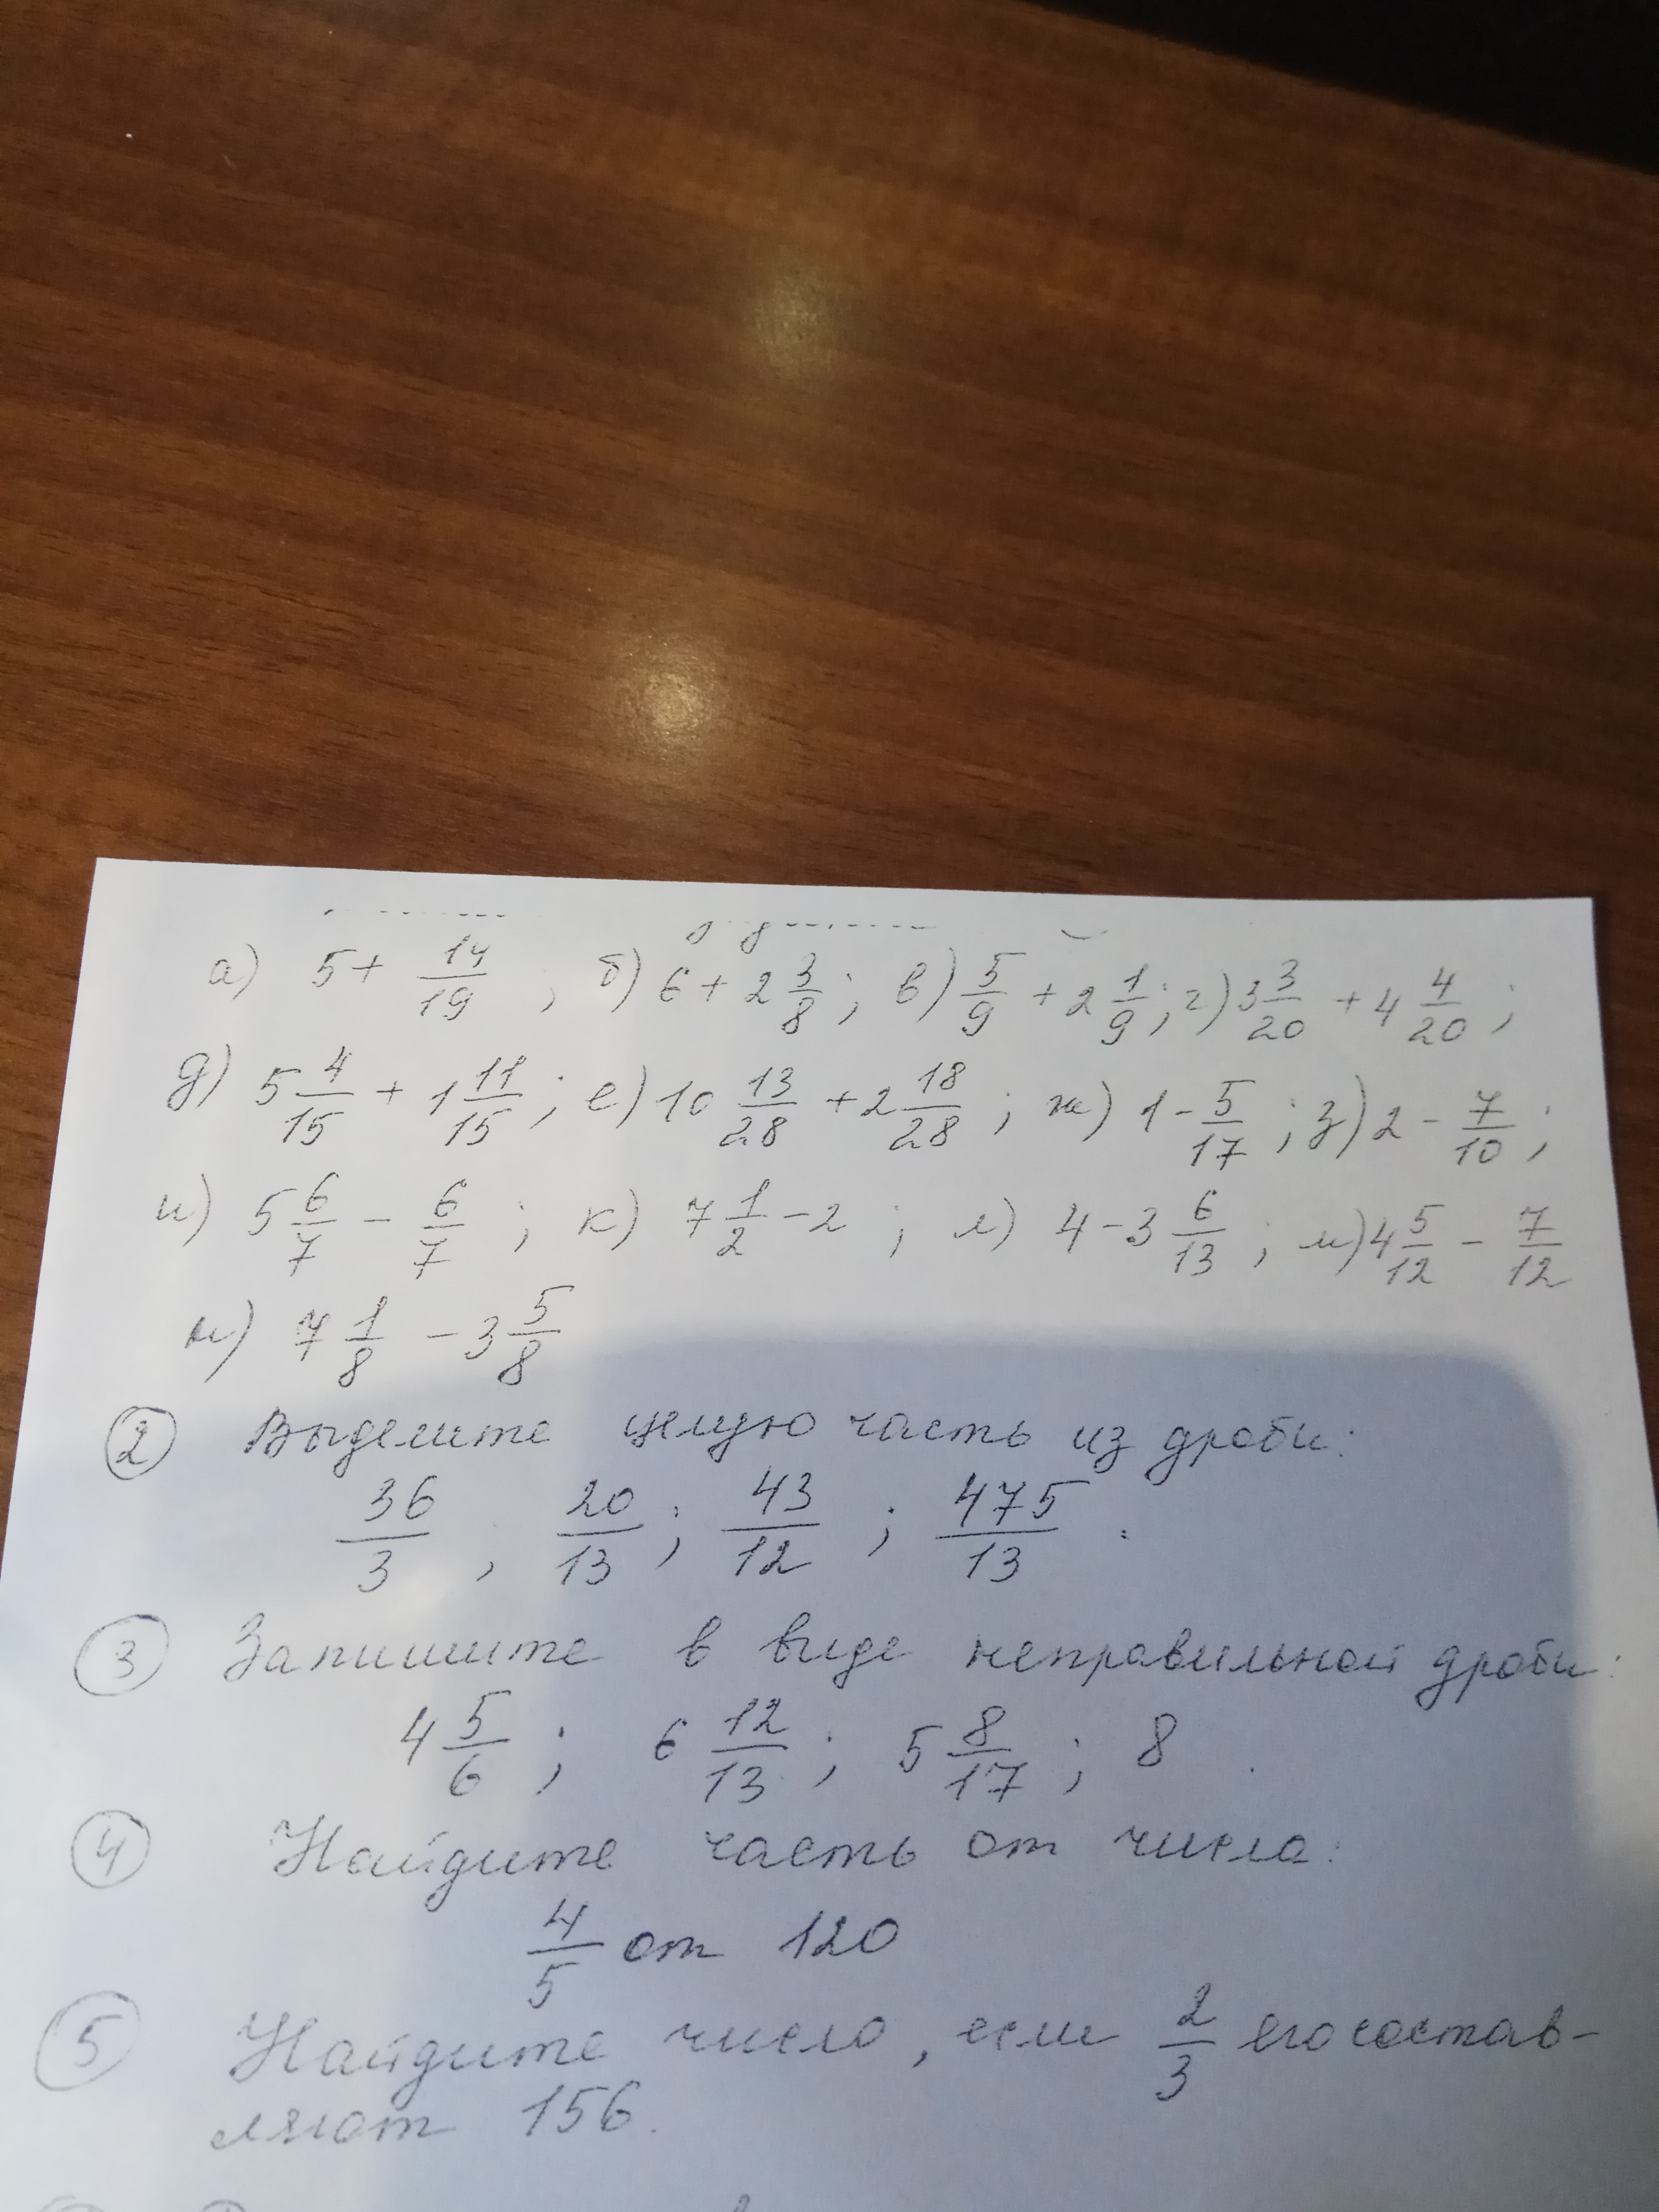 а) 5 + 14/19 ; б) 6 + 2 3/8 ; в) 5/9 + 2 1/9 ; г) 3 3/20 + 4 4/20 ;
д) 5 4/15 + 1 11/15 ; е) 10 13/28 + 2 18/28 ; ж) 1 - 5/17 ; з) 2 - 7/10 ;
и) 5 6/7 - 6/7 ; к) 7 1/2 - 2 ; л) 4 - 3 6/13 ; м) 4 5/12 - 7/12
н) 7 1/8 - 3 5/8
2 Выделите целую часть из дроби:
36/3 , 20/13 ; 43/12 ; 475/13 .
3 Запишите в виде неправильной дроби:
4 5/6 ; 6 12/13 ; 5 8/17 ; 8 .
4 Найдите часть от числа:
4/5 от 120
5 Найдите число, если 2/3 его состав-
ляют 156.